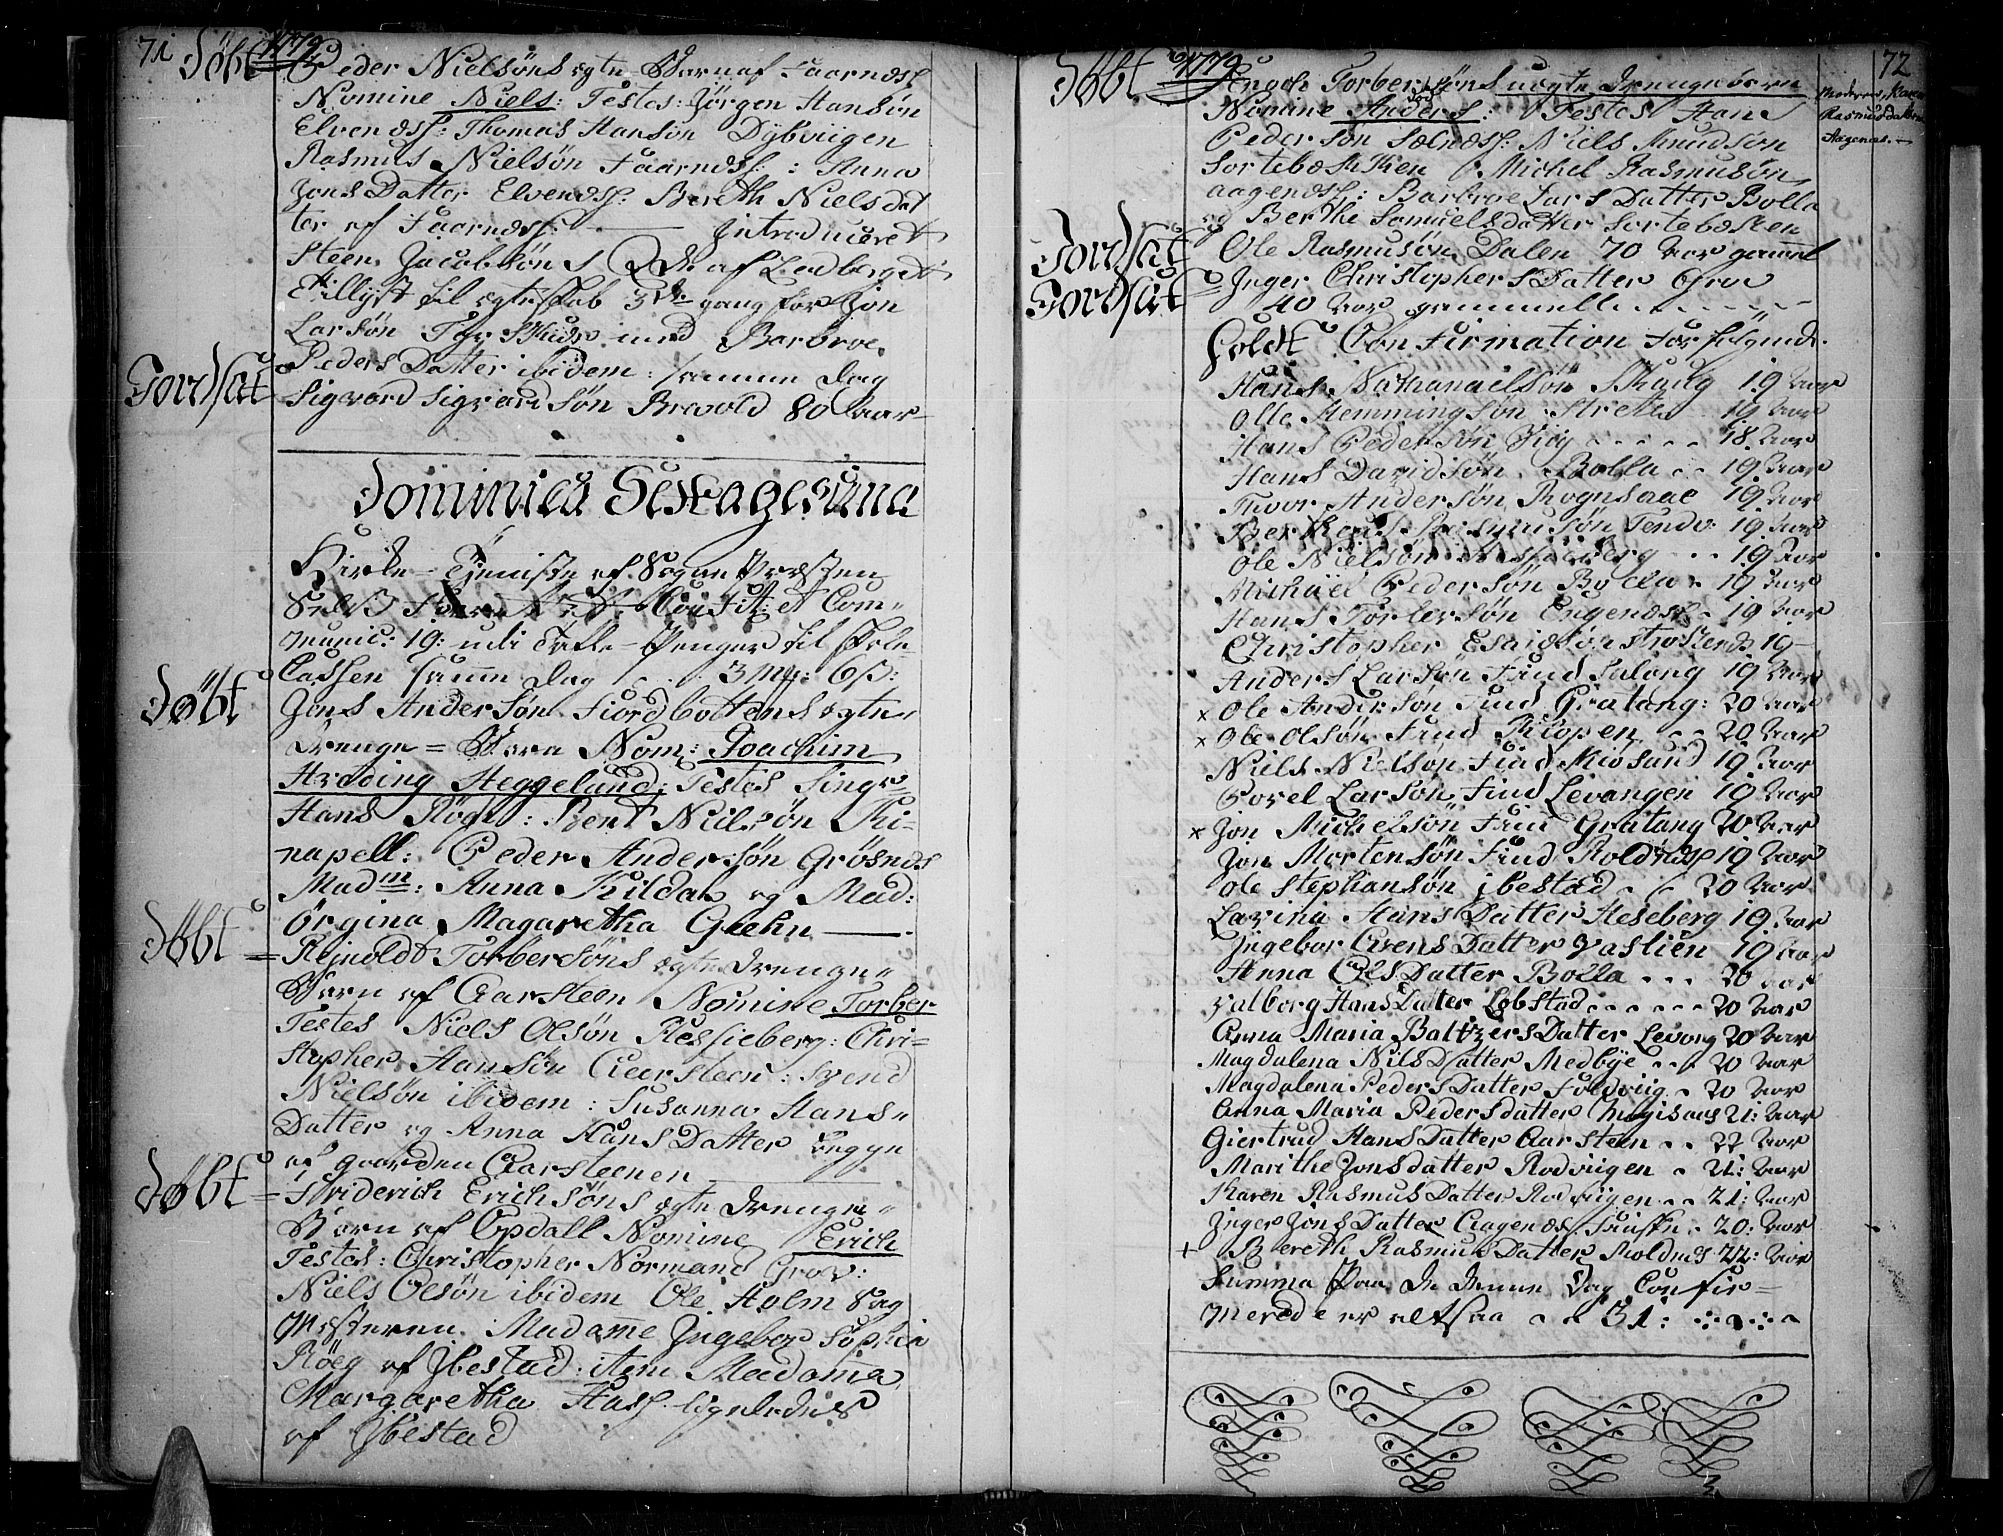 71
Døbt 1779
Peder Nielsöns ægte Barn af Faarndsf
Nomine Niels: Testes: Jörgen Hansön
Elvendsf: Thomas Hansön Dybviigen
Rasmus Nielsön Faarndsf: Anna
Jons Datter Elvendsf: Bereth Niels dat
ter af Faarndsf: — Introduceret
Steen Jacobsöns Qde af Ledberget
Tillyst til egteskab 3die gang for Jon
Larsön med Barbroe
Peders Datter ibidem: samme Dag
Jordsat
Sigvard Sigvardsön Brevold 80 Aar
Dominica Sexagesima
Kirke-Tieniste af Sogne Præsten
Selv Confit: et Com-
munic: 19: udi Tavle-Penger til
Cassen samme Dag . . . 3 Mk: 6 ß:
Døbt
Jens Andersön Fiordbottens ægte
Drenge = Barn Nom: Joachim
Hveding Heggelund: Testes Singr
Hans Rögh: Bent Nielsön Ki-
napell: Peder Andersön Grösnds
Madm: Anna Kildal og Mad:
Örgina Magaretha Giæhn —
Døbt =
Reinoldt Torbersöns ægte Drenge
Barn af Aarsteen Nomine Torber
Testes Niels Olsön Flessieberg: Chri-
stopher Hansön Aarsteen: Svend
Nielsön ibidem: Susanna Hans
Datter og Anna Hans Datter begge
af gaarden Aarsteenen
Døbt =
Friderich Erichsöns ægte Drenge
Barn af Opdall Nomine Erich
Testes: Christopher Normand Grov:
Niels Olsön ibidem Ole Holm Sag
Madame Ingebor Sophia
Röeg af Ibestad: item Madame
Margaretha Hass ligeledes
af Ibestad
72
Døbt 1779
Enoch Torbersöns uægte Drengebarn
Nomine Anders: Testes Hans
Pedersön Niels Knudsön
Sortebækken Michel Rasmusön
aagendsf: Barbroe Lars Datter Bolla
og Berthe Samuelsdatter Sortebækken
Moderen, Karen
Rasmusdatter
Aagenæs. —
Jordsat
Ole Rasmusön Dalen 70 Aar gammel
Jordsat
Inger Christophers Datter Grov
40 Aar gammell
Holdt Confirmation for fölgende.
Hans Nathanaelsön Skavlg 19 Aar
Olle Hemmingsön Strete 19 Aar
Hans Pedersön Viig 18 Aar
Hans Davidsön Bolla 19 Aar
Thoor Andersön Rognsaae 19 Aar
Berthous Rasmusön Tendv: 19 Aar
Ole Nielsön 19 Aar
Michael Pedersön Bolla 19 Aar
Hans Torlersön Engendsf 19 Aar
Christopher Esaiasön Trostend 19 —
Anders Larsön Find Salang 19 Aar
x Ole Andersön Find Gratang: 20 Aar
x Ole Olsön Find Kiopen 20 Aar
Niels Nielsön Find Miösund 19 Aar
Povel Larsön Find Levangen 19 Aar
x Jon Michelsön Find Gratang 20 Aar
Jon Mortensön Find Roldnds 19 Aar
Ole Stephansön ibestad 20 Aar
Lavina Hans Datter Heseberg 19 Aar
Ingebor Arens Datter Vaslien 19 aar
Anna Ols Datter Bolla 20 aar
Valborg Hans Datter Löbstad 20 Aar
Anna Maria Baltzers Datter Levong 20 Aar
Magdalena Nils Datter Medbye 20 Aar
Magdalena Peders Datter Foldviig 20 Aar
Anna Maria Pedersdatter 21: Aar
Giertrud Hans Datter Aarsteen 22 Aar
Marithe Jonsdatter Rodviigen 21: Aar
Karen Rasmus Datter Rodviigen 21: Aar
Inger Jons Datter Aagends 20: Aar
+ Bereth Rasmus Datter Roldnes 22: Aar
Summa Paa De denne Dag Confir-
merede er altsaa 31: